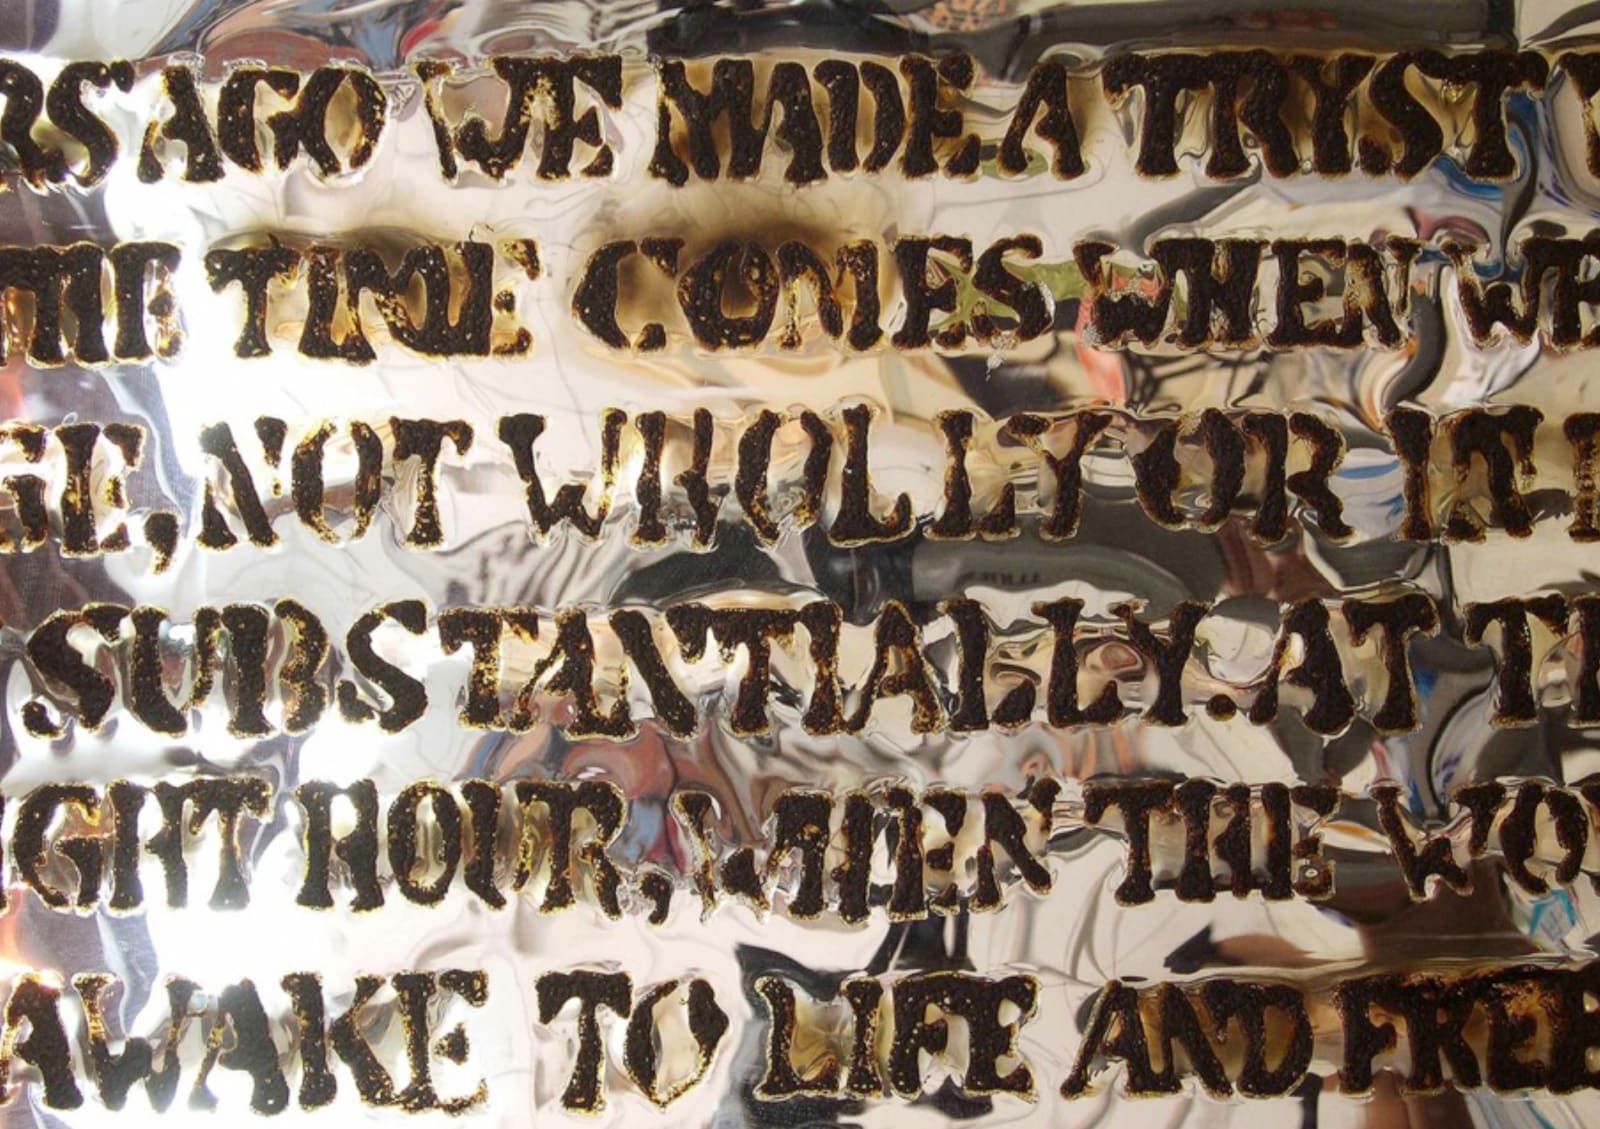 RS AGO WE MADE A TRYST
THE TIME COMES WHEN WE
GE, NOT WHOLLY OR IN
SUBSTANTIALLY. AT TH
IGHT HOUR, WHEN THE WO
AWAKE TO LIFE AND FREE